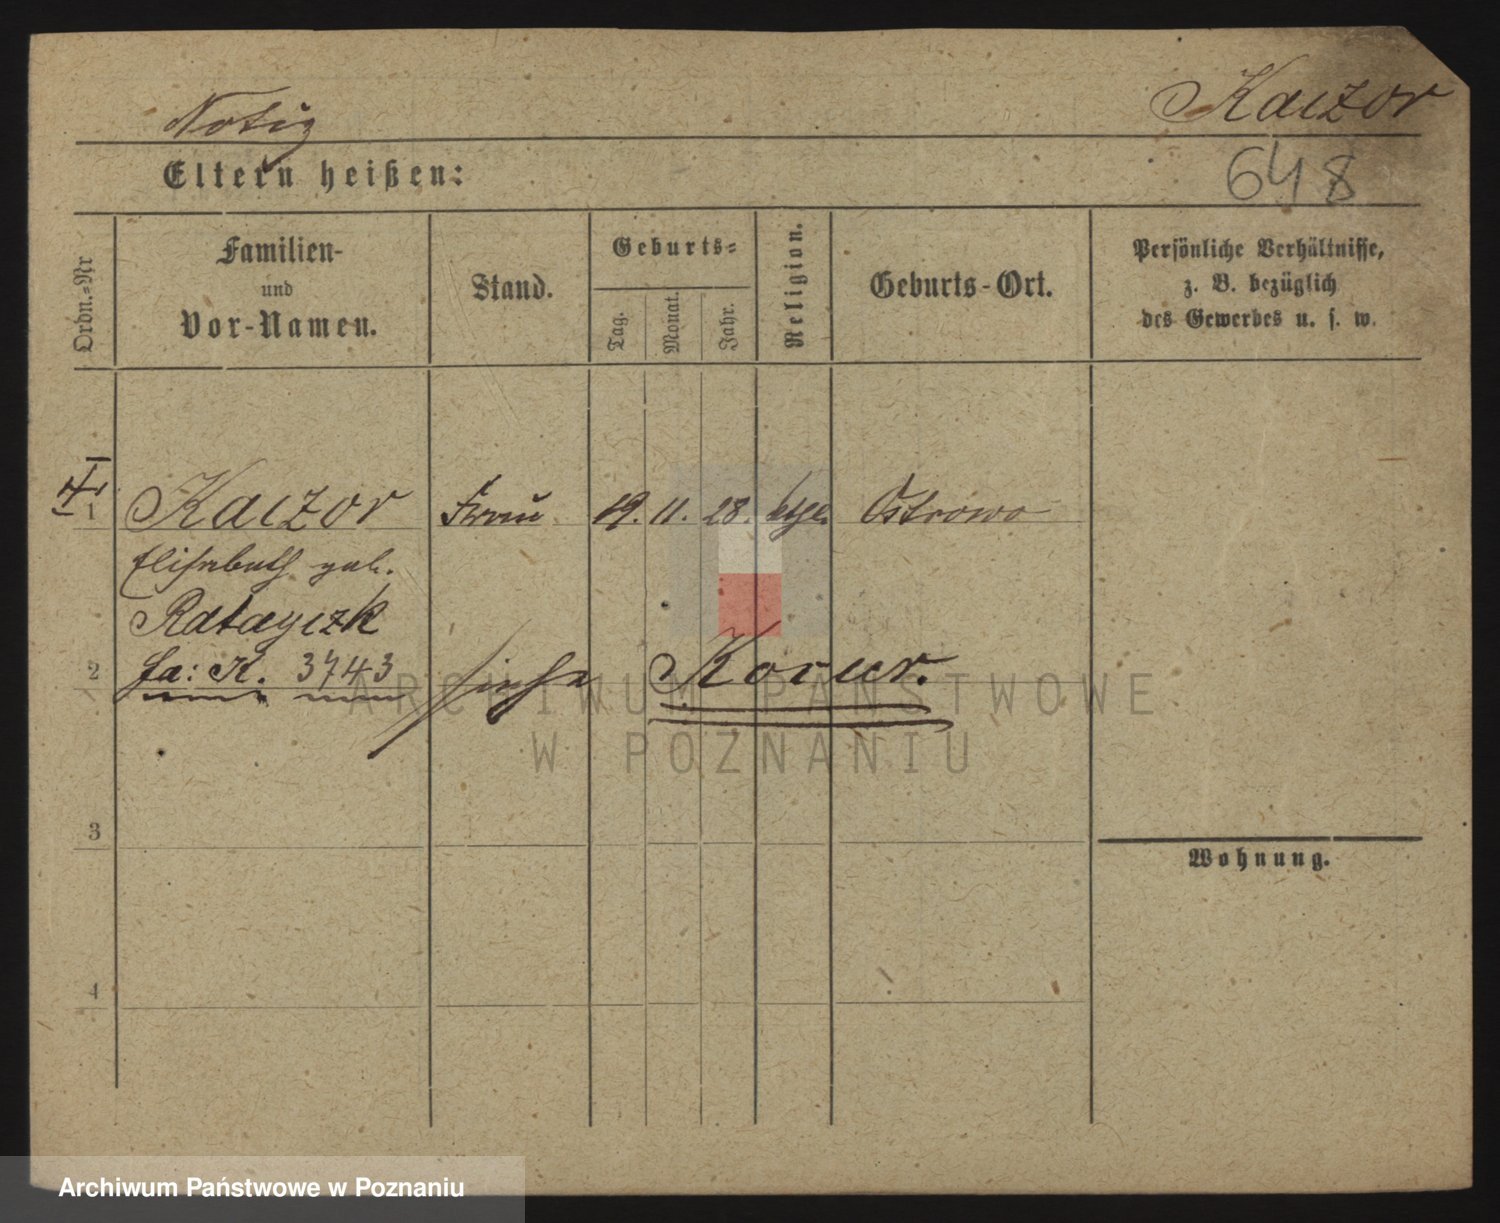 Notiz
Kaczor
648
Eltern heißen:
Ordn.-Nr
Familien-
und
Vor-Namen.
Stand.
Geburts-
Tag.
Monat.
Jahr.
Religion.
Geburts-Ort.
Persönliche Verhältnisse,
z. B. bezüglich
des Gewerbes u. s. w.
1
Kaczor
Frau
19. 11. 28.
Ostrowo
Elisabeth geb.
Ratayczk
2
fa: K. 3743
siehe
3
Wohnung.
4
ARCHIWUM PAŃSTWOWE
W POZNANIU
Archiwum Państwowe w Poznaniu